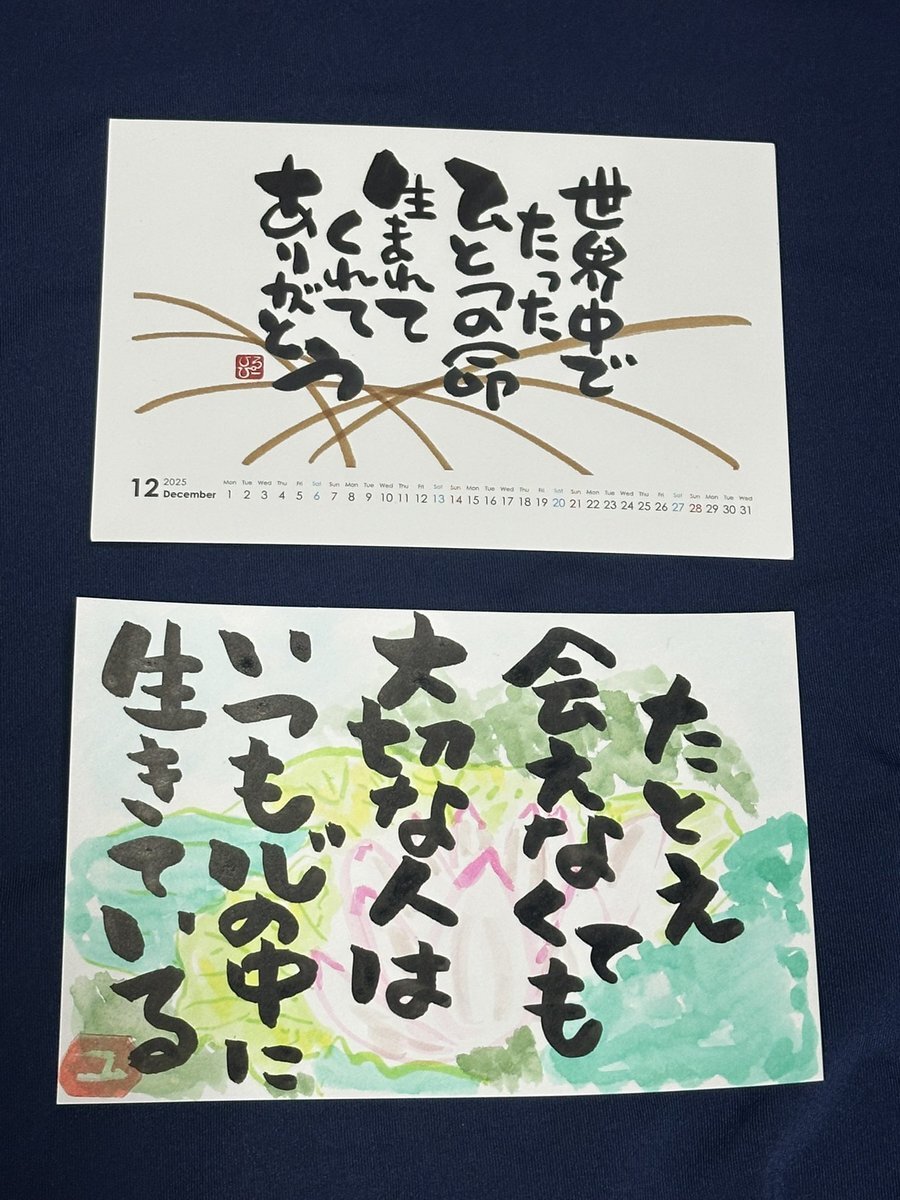 世界中で
たった
ひとつの命
生まれて
くれて
ありがとう
12
2025
December
Mon Tue Wed Thu Fri Sat Sun Mon Tue Wed Thu Fri Sat Sun Mon Tue Wed Thu Fri Sat Sun Mon Tue Wed Thu Fri Sat Sun Mon Tue Wed
1 2 3 4 5 6 7 8 9 10 11 12 13 14 15 16 17 18 19 20 21 22 23 24 25 26 27 28 29 30 31
たとえ
会えなくても
大切な人は
いつも心の中に
生きている
ユ